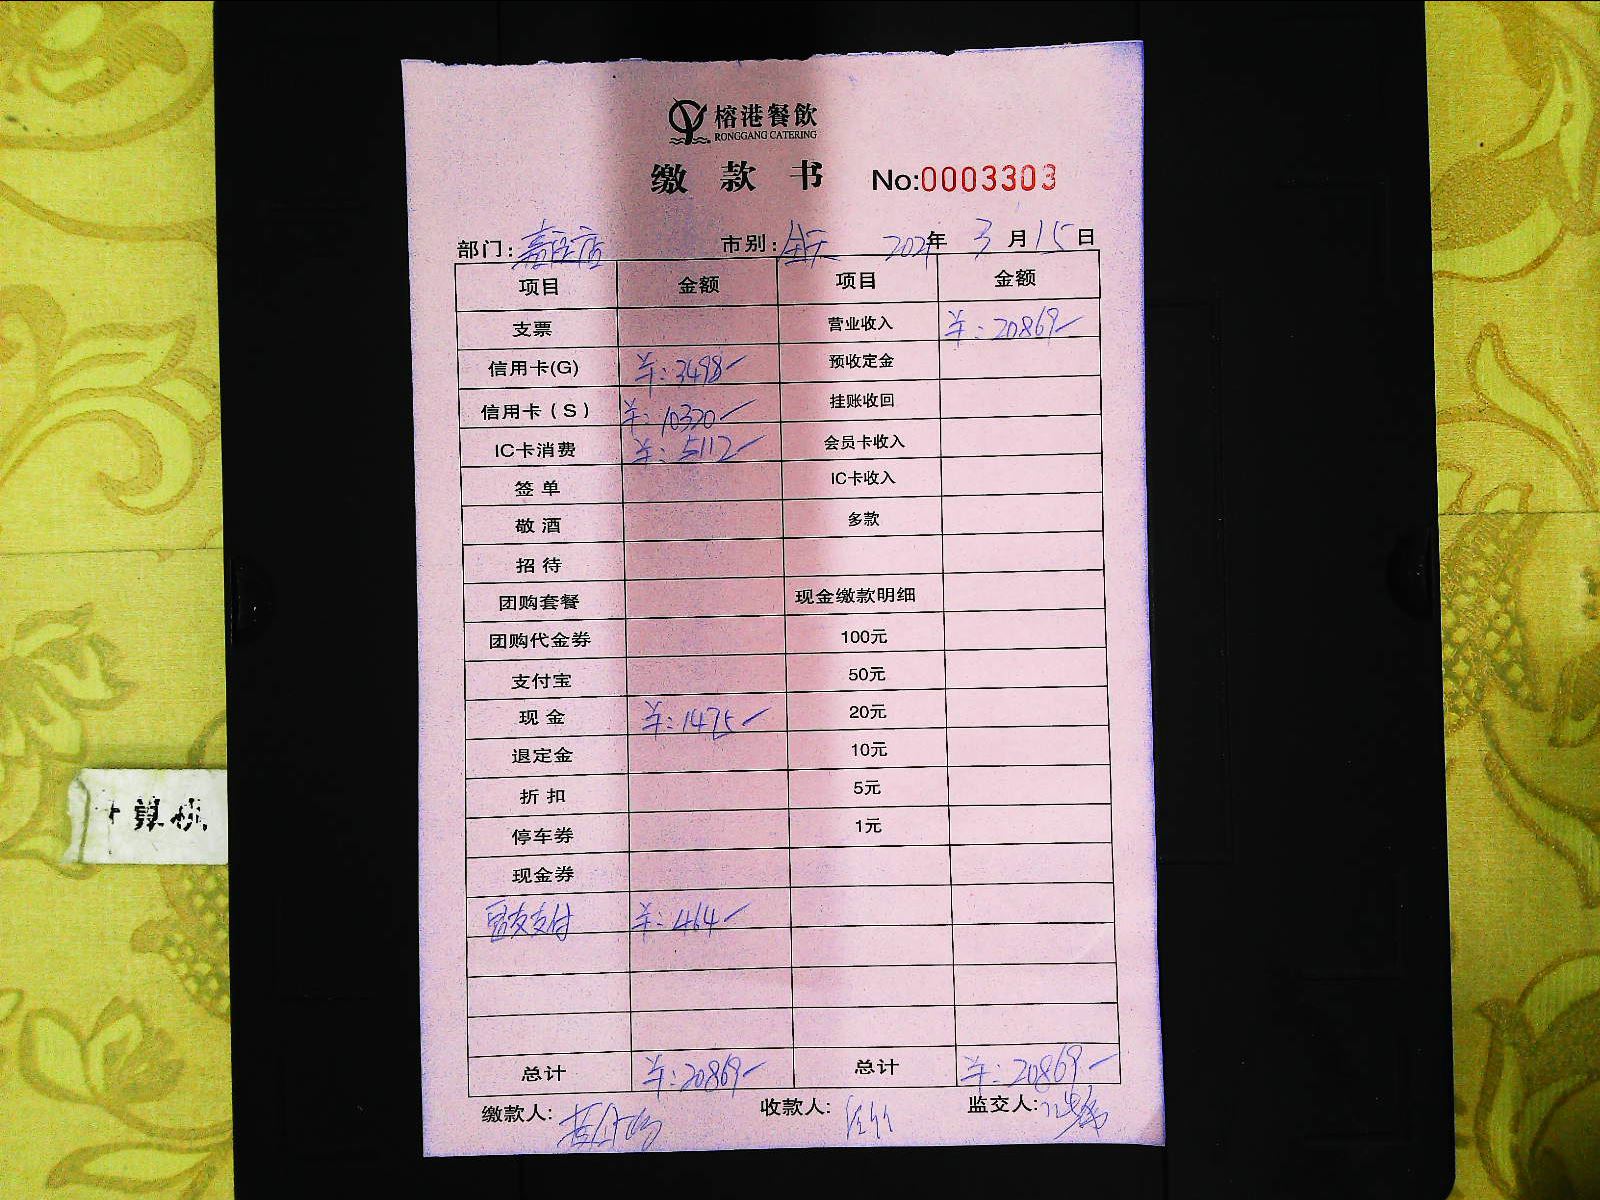 榕港餐飲
RONGGANG CATERING
缴款书 No:0003303
部门: 市别:全天 2021年3月15日
项目 金额 项目 金额
支票 营业收入 ¥:20869
信用卡(G) ¥:3498 预收定金
信用卡(S) ¥:10320 挂账收回
IC卡消费 ¥:5112 会员卡收入
签单 IC卡收入
敬酒 多款
招待
团购套餐 现金缴款明细
团购代金券 100元
支付宝 50元
现金 ¥:1475 20元
退定金 10元
折扣 5元
停车券 1元
现金券
支付 ¥:464
总计 ¥:20869 总计 ¥:20869
缴款人: 收款人: 监交人:
计算机